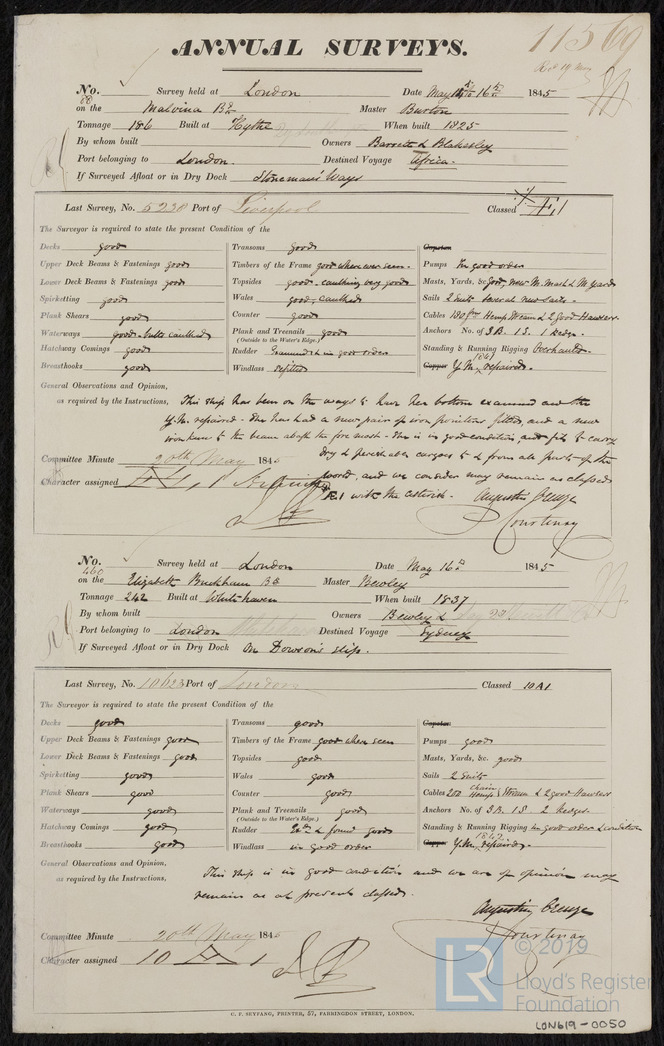 11569
ANNUAL SURVEYS.
No. 88 Survey held at London Date May 16th 1845
on the Malvina Bk Master Burton
Tonnage 186 Built at Hythe When built 1825
By whom built Owners Barrett & Blakesley
Port belonging to London. Destined Voyage Africa.
If Surveyed Afloat or in Dry Dock Stoneman's Ways
Last Survey, No. 5230 Port of Liverpool Classed Æ 1
The Surveyor is required to state the present Condition of the
Decks good Transoms good Capstan
Upper Deck Beams & Fastenings good Timbers of the Frame good where seen. Pumps In good order
Lower Deck Beams & Fastenings good Topsides good caulking very good Masts, Yards, &c. good, new M. mast & M yards
Spirketting good Wales good, caulked Sails 2 Suits several new sails.
Plank Shears good Counter good Cables Hemp Stream & 2 good Hawsers.
Waterways good. butts caulked Plank and Treenails good Anchors No. of 3B. 1S. 1 Kedge.
(Outside to the Water's Edge.)
Hatchway Comings good Rudder Examined & in good order Standing & Running Rigging Overhauled.
Breasthooks good Windlass refitted Copper Y.M. 1841 repaired.
General Observations and Opinion,
as required by the Instructions, This ship has been on the ways to have her bottom examined and the
Y.M. repaired. She has had a new pair of iron pointers fitted, and a new
iron knee to the beam abaft the fore mast. She is in good condition, and fit to carry
dry & perishable cargoes to & from all parts of the
world, and we consider may remain as classed
Æ 1 with the asterisk. Augustin Creuze
Courtenay
Committee Minute 20th May 1845
Character assigned Æ 1
No. 460 Survey held at London Date May 16th 1845
on the Elizabeth Buckham Bk Master Bewley
Tonnage 242 Built at Whitehaven When built 1837
By whom built Owners Bewley &
Port belonging to London Destined Voyage Sydney
If Surveyed Afloat or in Dry Dock On Dowson's slip.
Last Survey, No. 10623 Port of London Classed 10 A1
The Surveyor is required to state the present Condition of the
Decks good Transoms good Capstan
Upper Deck Beams & Fastenings good Timbers of the Frame good where seen Pumps good
Lower Deck Beams & Fastenings good Topsides good Masts, Yards, &c. good
Spirketting good Wales good Sails 2 Suits
Plank Shears good Counter good Cables 200 Chain Hemp Stream & 2 good Hawsers
Waterways good Plank and Treenails good Anchors No. of 3B. 1S 2 Kedges.
(Outside to the Water's Edge.)
Hatchway Comings good Rudder & found good Standing & Running Rigging in good order & condition
Breasthooks good Windlass in good order Copper Y.M. 1842 repaired.
General Observations and Opinion,
as required by the Instructions, This ship is in good condition and we are of opinion may
remain as at present classed.
Augustin Creuze
Courtenay
Committee Minute 20th May 1845
Character assigned 10 A 1
C. F. SEYFANG, PRINTER, 57, FARRINGDON STREET, LONDON.
LR © 2019
Lloyd's Register
Foundation
LON619-0050